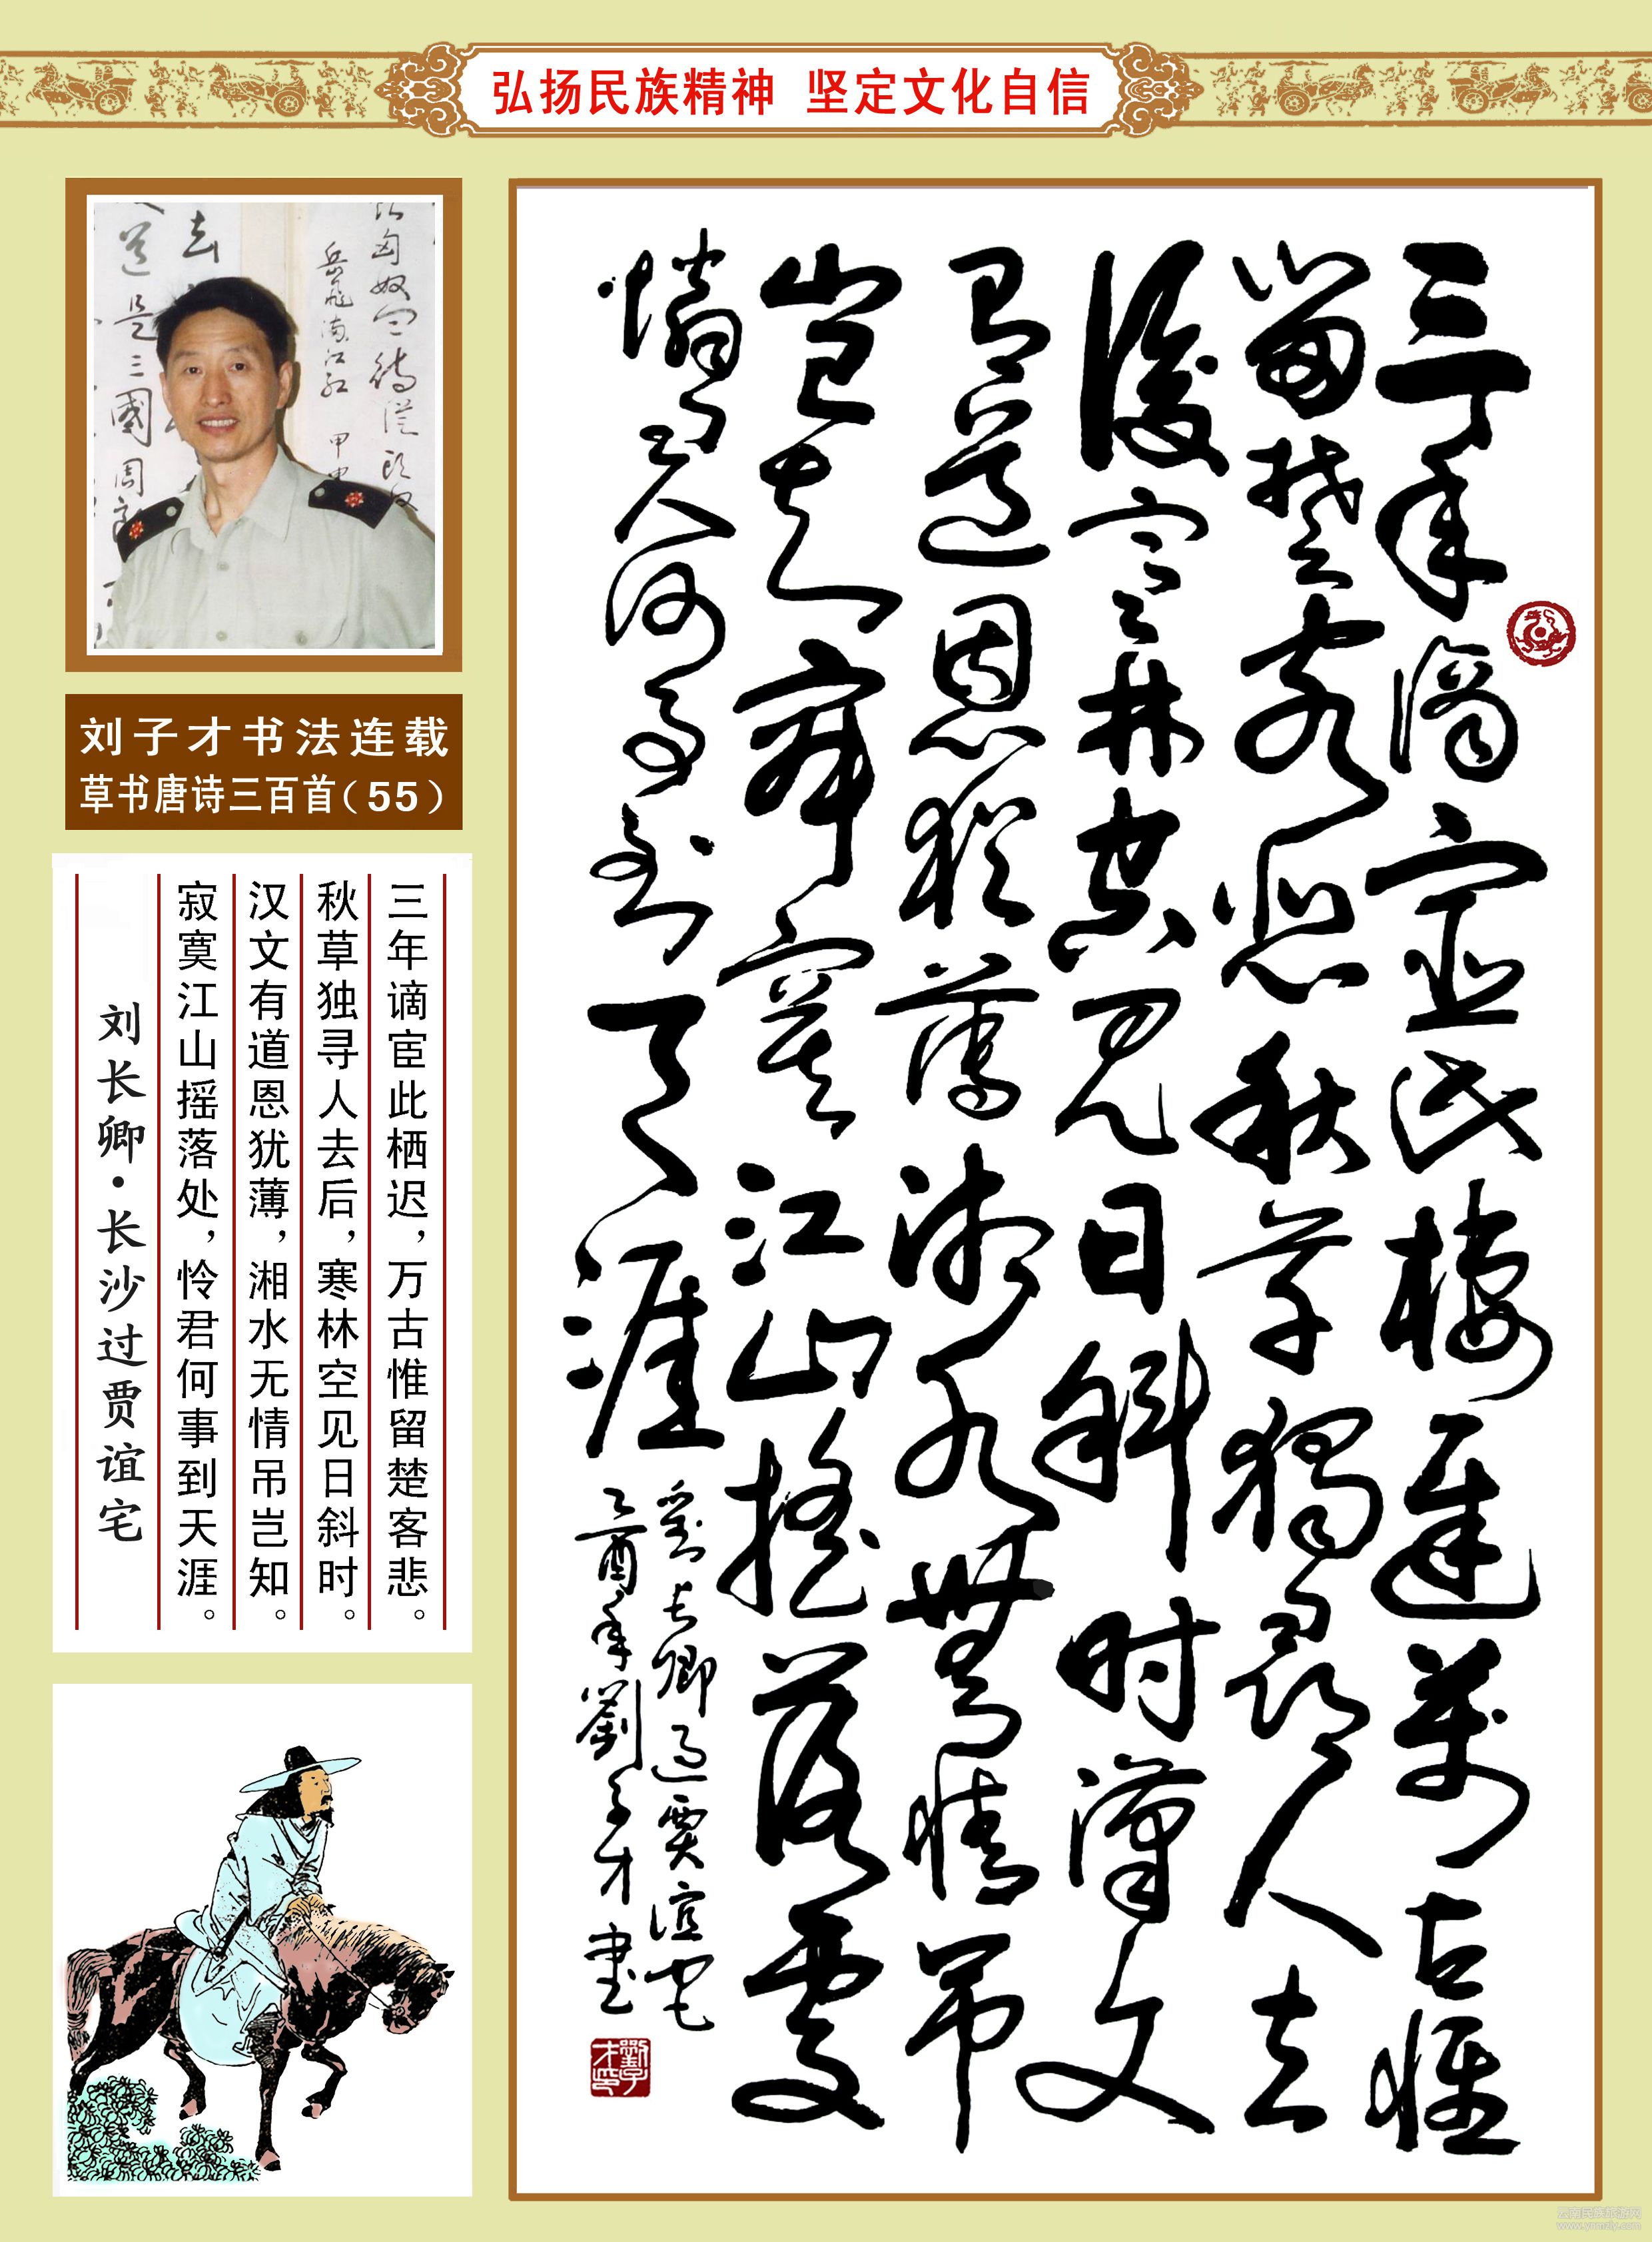 弘扬民族精神 坚定文化自信
刘子才书法连载
草书唐诗三百首（55）
三年谪宦此栖迟，万古惟留楚客悲。
秋草独寻人去后，寒林空见日斜时。
汉文有道恩犹薄，湘水无情吊岂知。
寂寞江山摇落处，怜君何事到天涯。
刘长卿·长沙过贾谊宅
三年谪宦此棲遲萬古惟
留楚客悲秋草獨尋人去
後寒林空見日斜时漢文
有道恩猶薄湘水無情吊
豈知寂寞江山摇落處
憐君何事到天涯
劉长卿過賈谊宅
乙酉年劉子才書